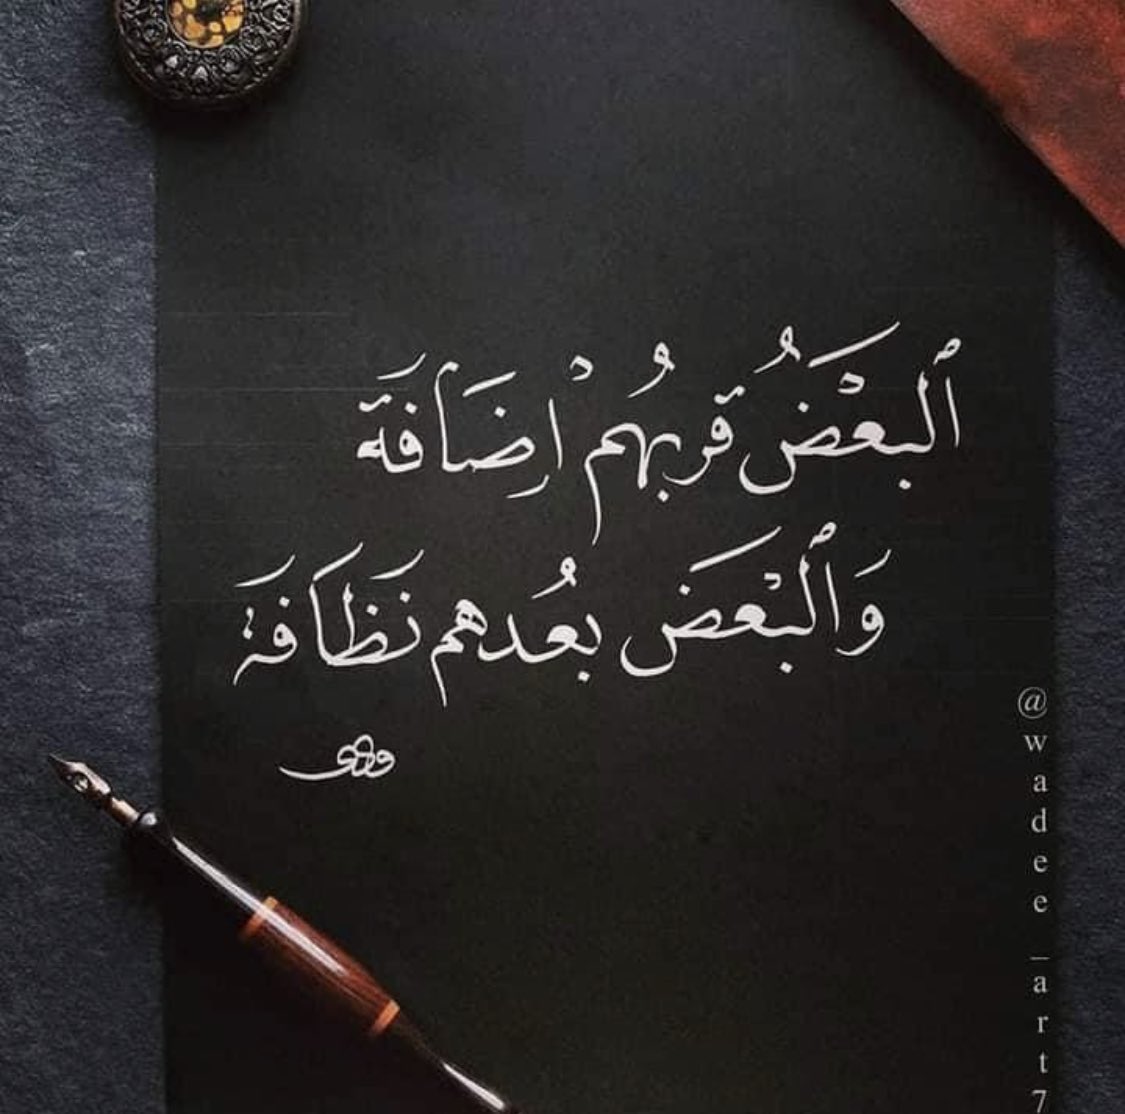 ٱلبَعْضُ قُربُهُم اِضَافَة
وَٱلبَعْضَ بُعدهم نَظَافَة
@wadee_art7